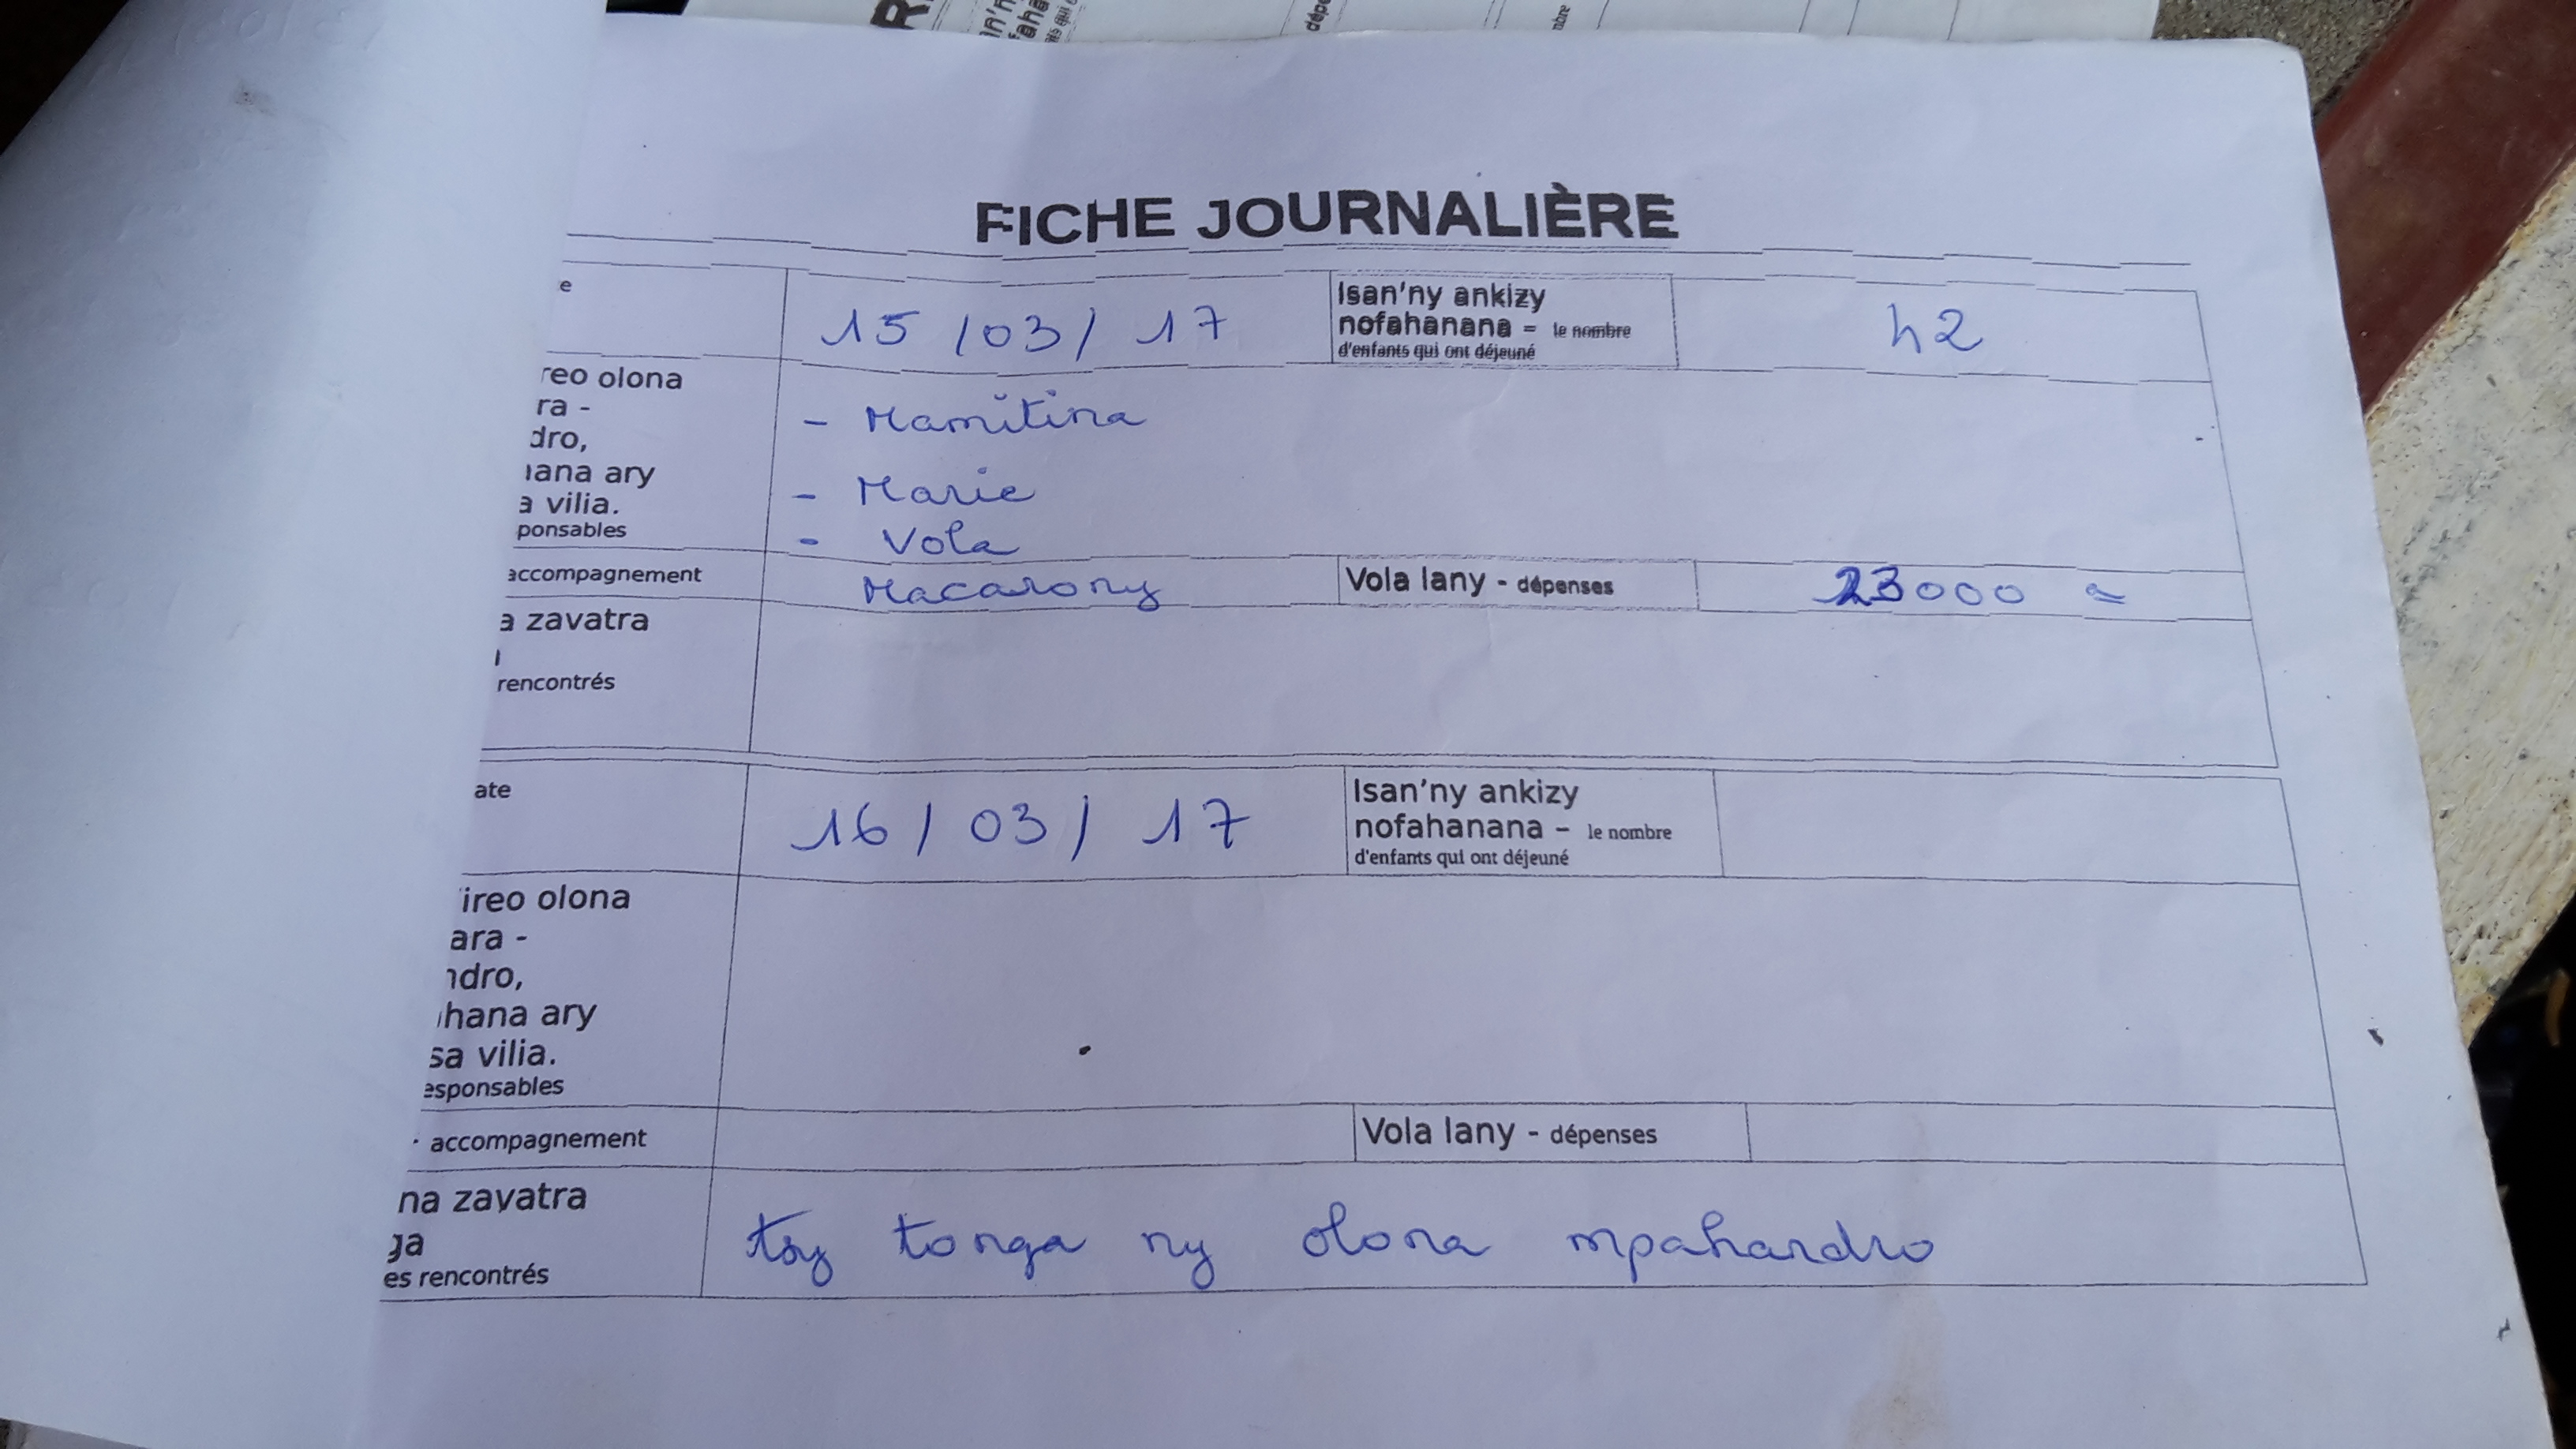 FICHE JOURNALIÈRE
e
15/03/17
Isan'ny ankizy
nofahanana = le nombre
d'enfants qui ont déjeuné
42
reo olona
ra -
dro,
hana ary
a vilia.
ponsables
- Mamitina
- Marie
- Vola
accompagnement
Macarony
Vola lany - dépenses
23000 =
a zavatra
rencontrés
ate
16/03/17
Isan'ny ankizy
nofahanana - le nombre
d'enfants qui ont déjeuné
ireo olona
ara -
ndro,
hana ary
sa vilia.
esponsables
- accompagnement
Vola lany - dépenses
na zavatra
ga
es rencontrés
tsy tonga ny olona mpahandro